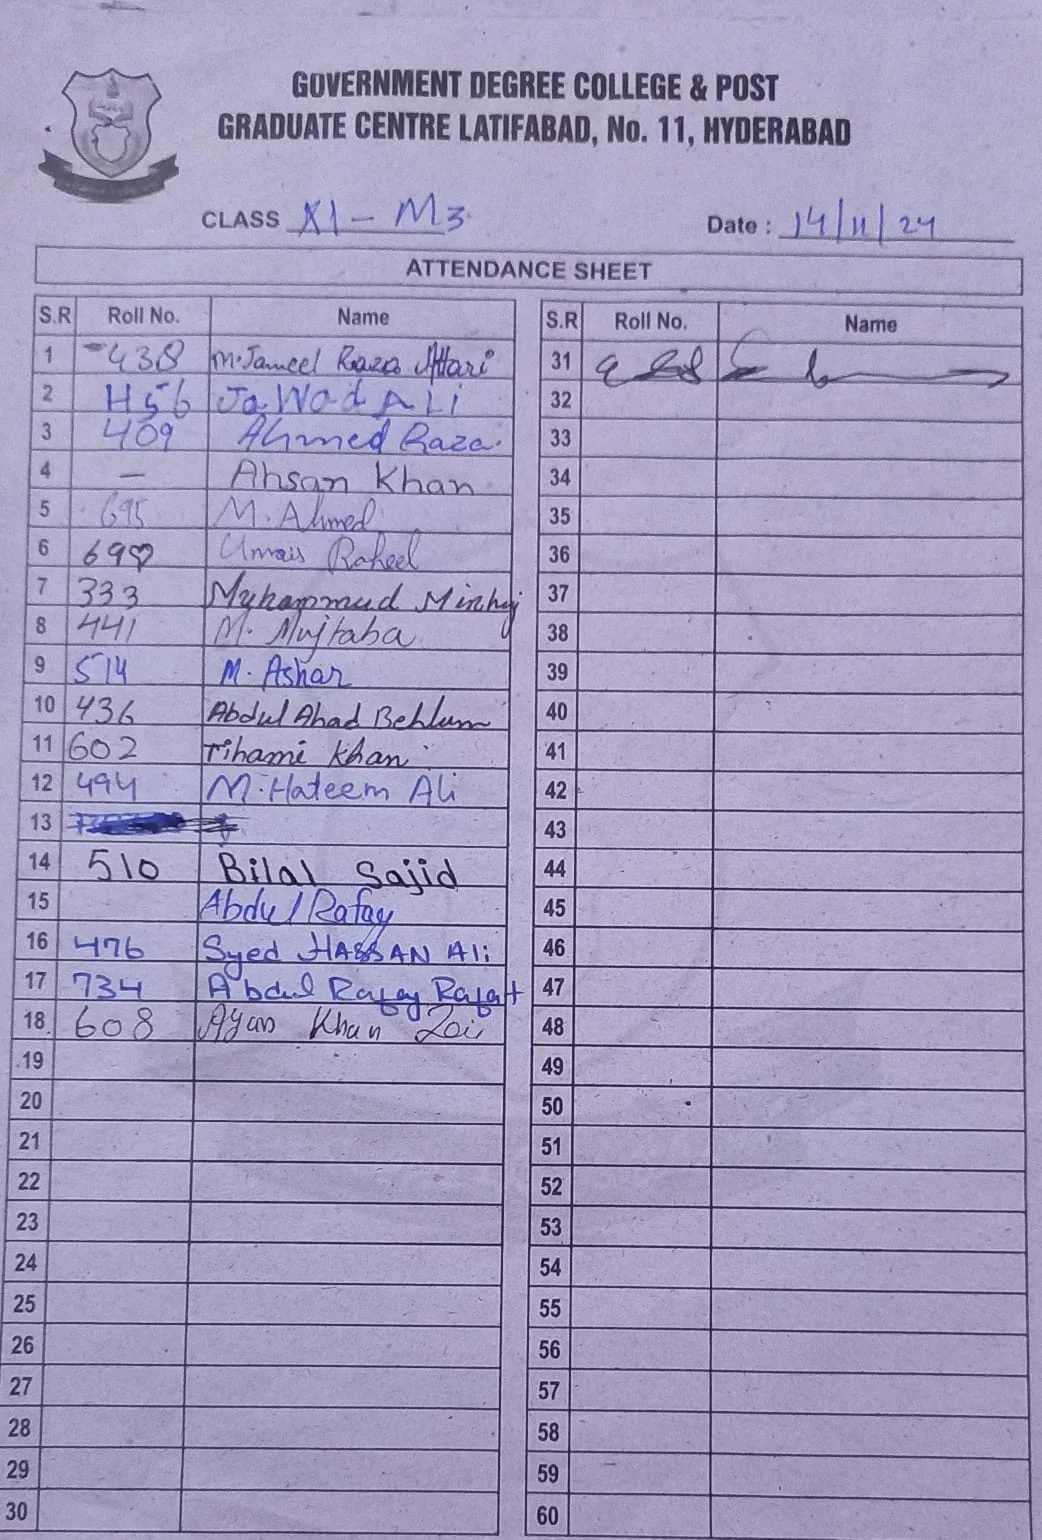 GOVERNMENT DEGREE COLLEGE & POST
GRADUATE CENTRE LATIFABAD, No. 11, HYDERABAD
CLASS XI - M3
Date : 14/11/24
ATTENDANCE SHEET
S.R Roll No. Name
1 438 M.Jameel Raza Attari
2 H56 JaWad ALi
3 409 Ahmed Raza.
4 — Ahsan Khan
5 695 M. Ahmed
6 69 Umais Raheel
7 333 Muhammad Minhaj
8 441 M. Mujtaba
9 514 M. Ashar
10 436 Abdul Ahad Behlum
11 602 Tihami Khan
12 494 M.Hateem Ali
13
14 510 Bilal Sajid
15 Abdul Rafay
16 476 Syed HASSAN Ali
17 734 Abdul Rafay Rafat
18 608 Ayan Khan
19
20
21
22
23
24
25
26
27
28
29
30
S.R Roll No. Name
31
32
33
34
35
36
37
38
39
40
41
42
43
44
45
46
47
48
49
50
51
52
53
54
55
56
57
58
59
60